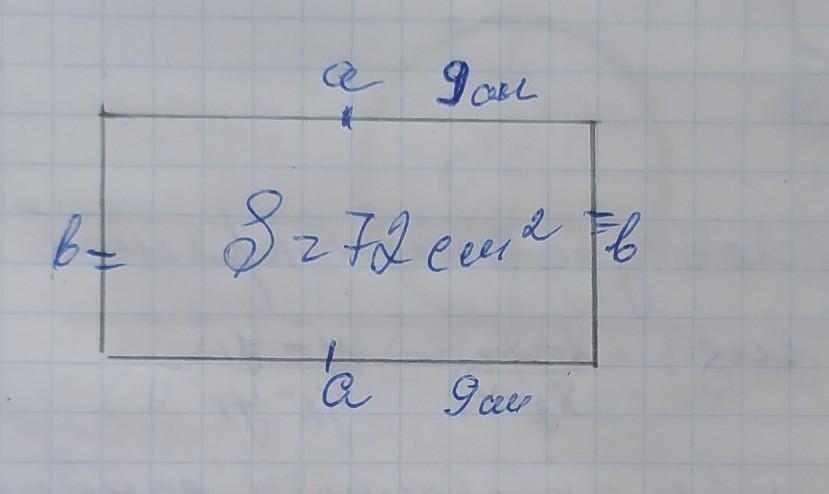 a 9см
в S = 72 см² в
a 9см